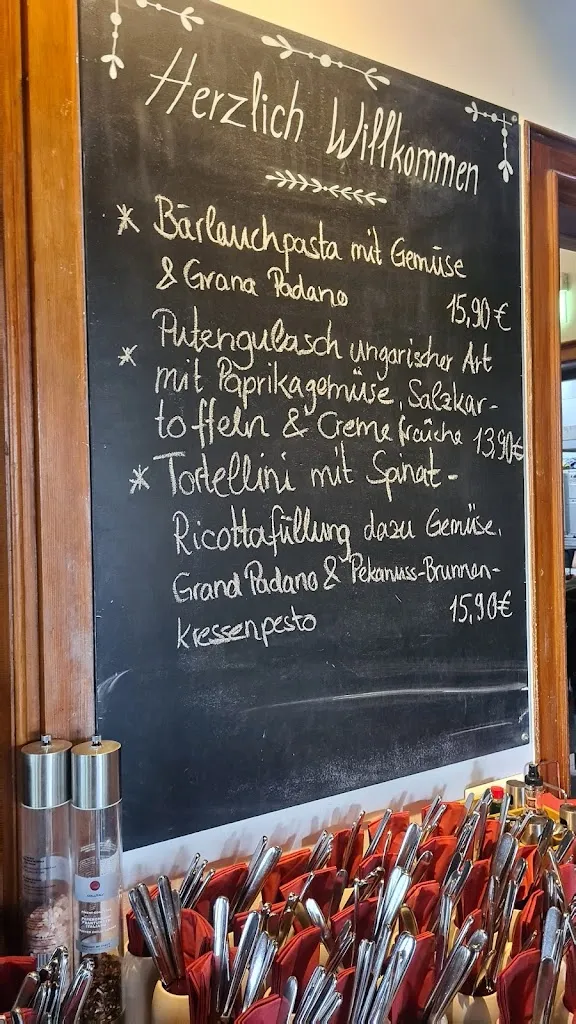 Herzlich Willkommen
* Bärlauchpasta mit Gemüse
& Grana Padano 15,90 €
* Putengulasch ungarischer Art
mit Paprikagemüse, Salzkar-
toffeln & Creme fraîche 13,90€
* Tortellini mit Spinat-
Ricottafüllung dazu Gemüse,
Grand Padano & Pekanuss-Brunnen-
kressenpesto 15,90€